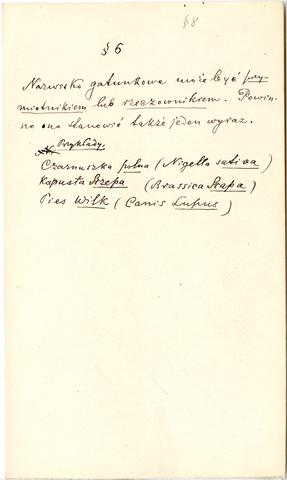 §8
§ 6
Nazwisko gatunkowe może być przy-
miotnikiem lub rzeczownikiem. Powin-
no ono stanowić także jeden wyraz.
Przykłady.
Czarnuszka polna (Nigella sativa)
Kapusta Rzepa (Brassica Rapa)
Pies Wilk (Canis Lupus)